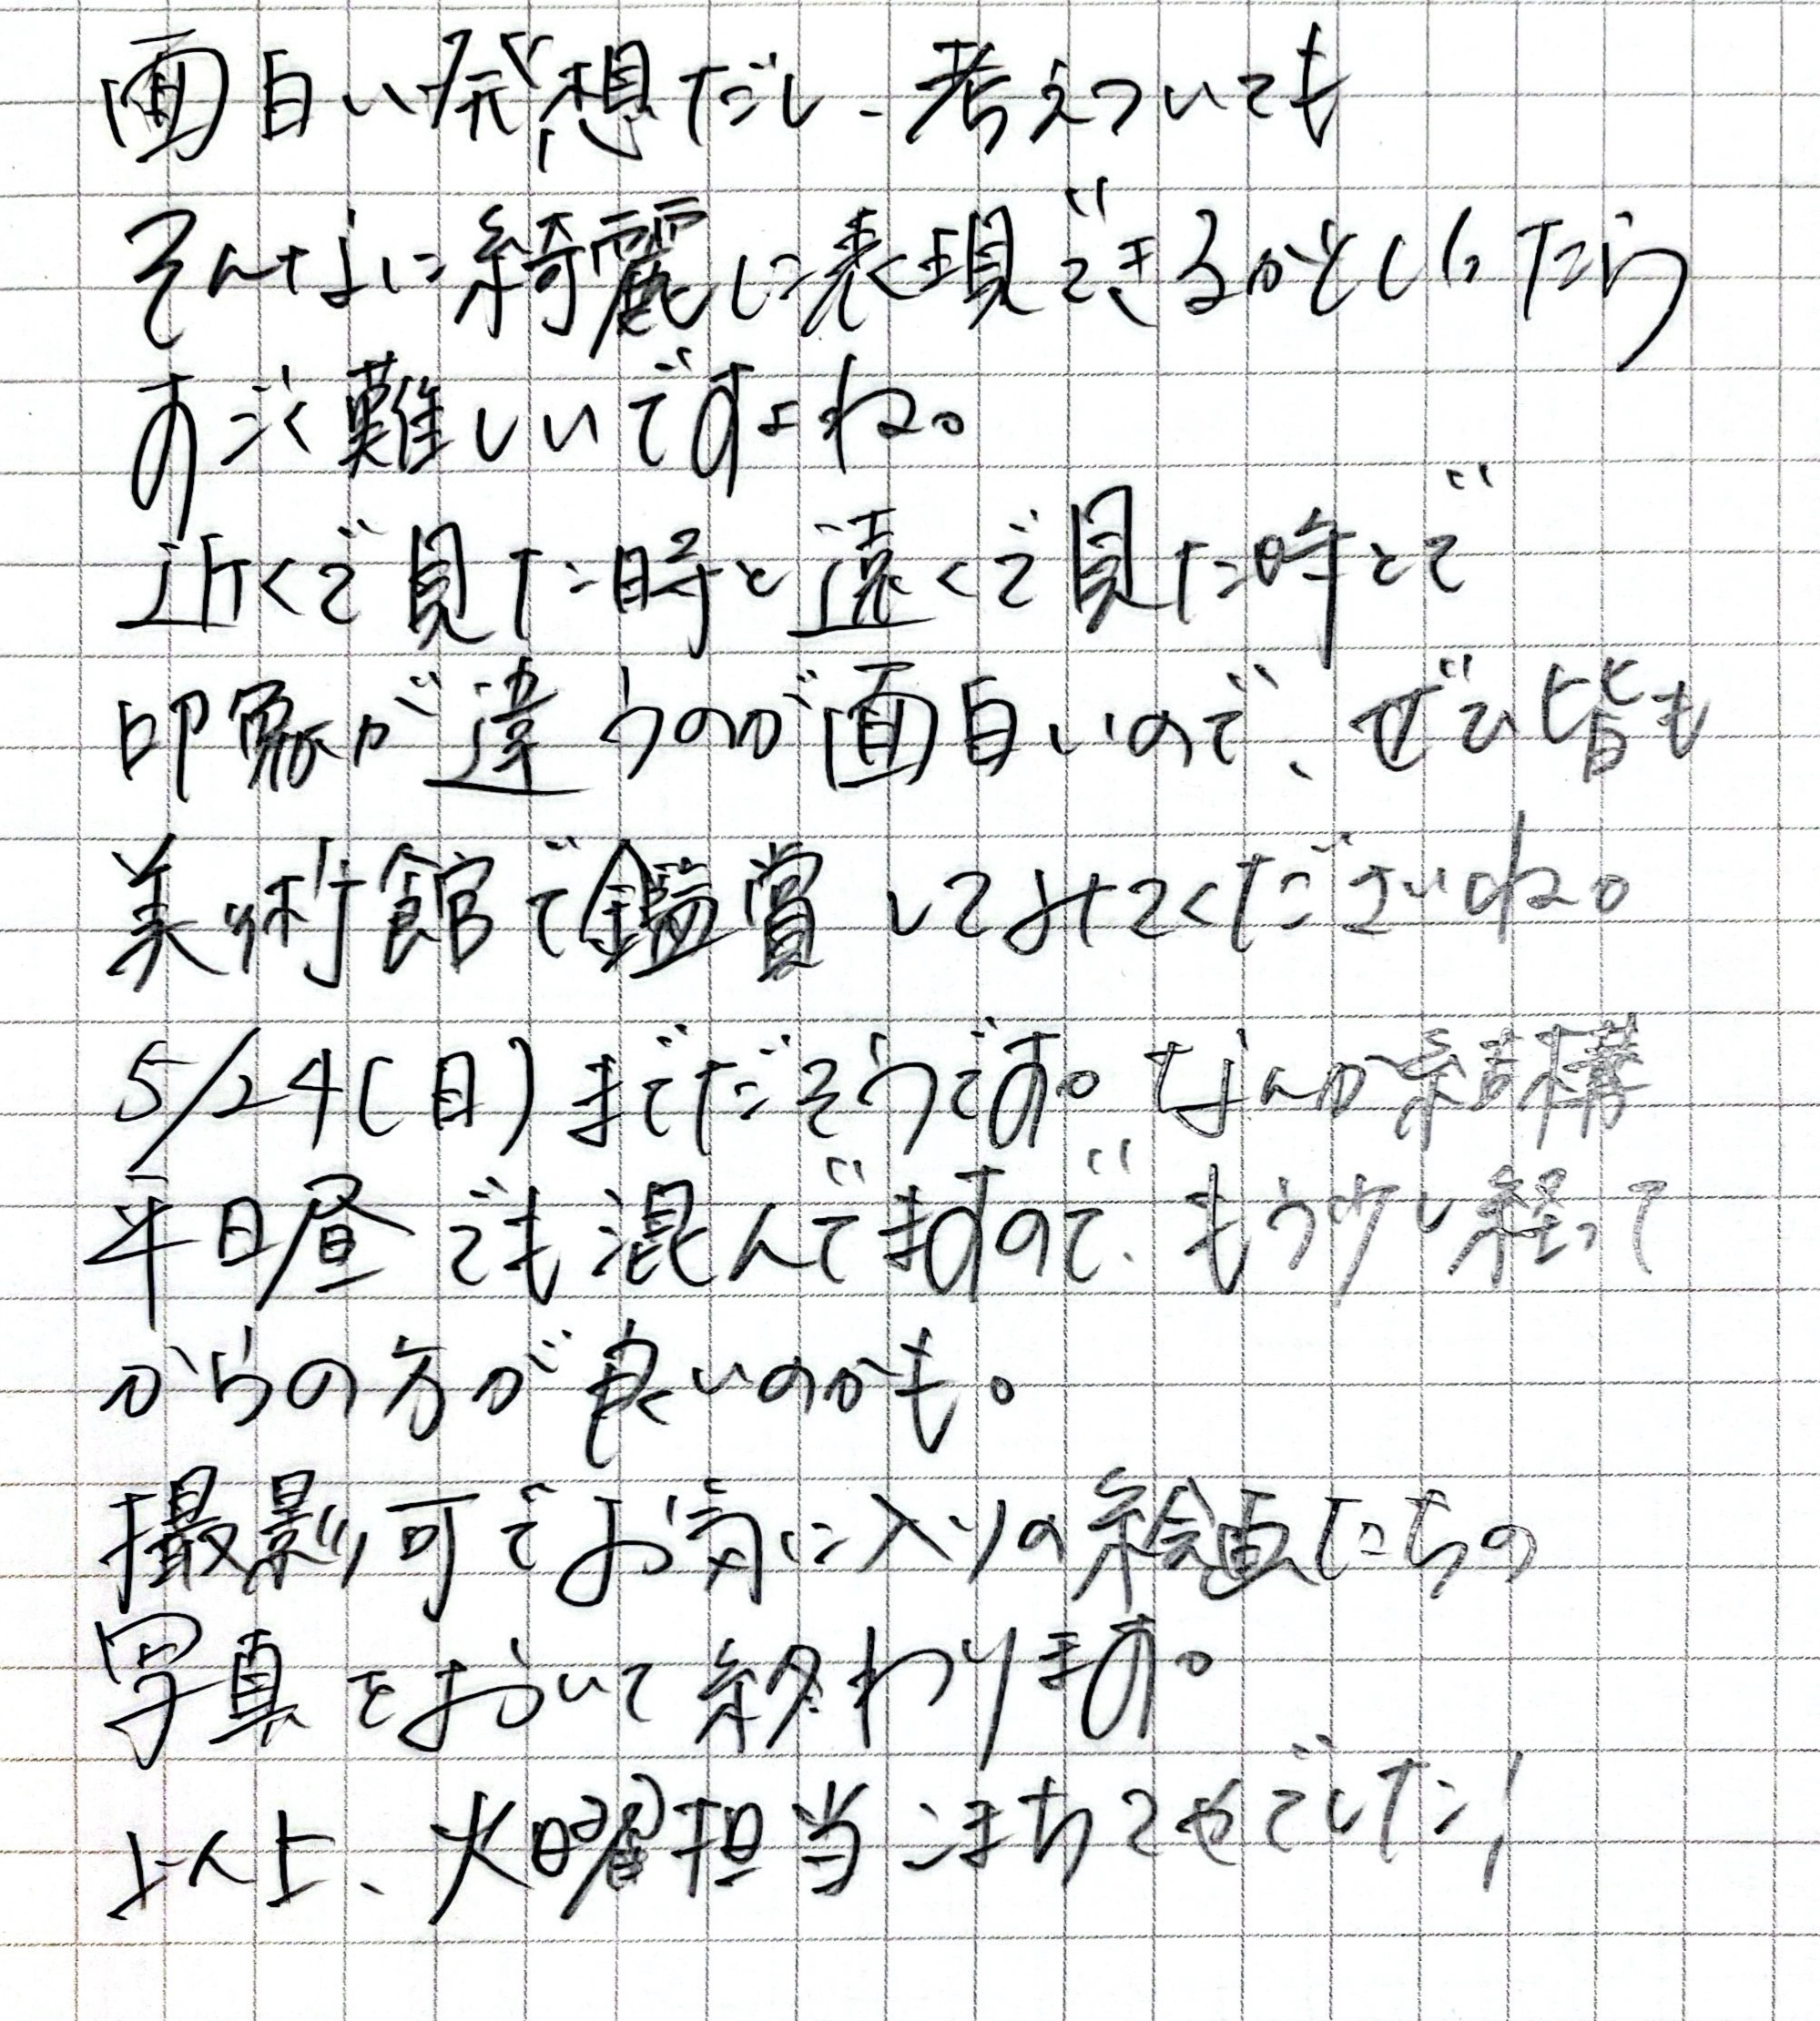 面白い発想だし、考えついても
そんなに綺麗に表現できるかといったら
すごく難しいですよね。
近くで見た時と遠くで見た時とで
印象が違うのが面白いので、ぜひ皆も
美術館で鑑賞してみてくださいね。
5/24(日)までだそうです。なんか結構
平日昼でも混んでますので、もう少し経って
からの方が良いのかも。
撮影可でお気に入りの絵画たちの
写真をおいて終わります。
以上、火曜担当こまちてやでした!